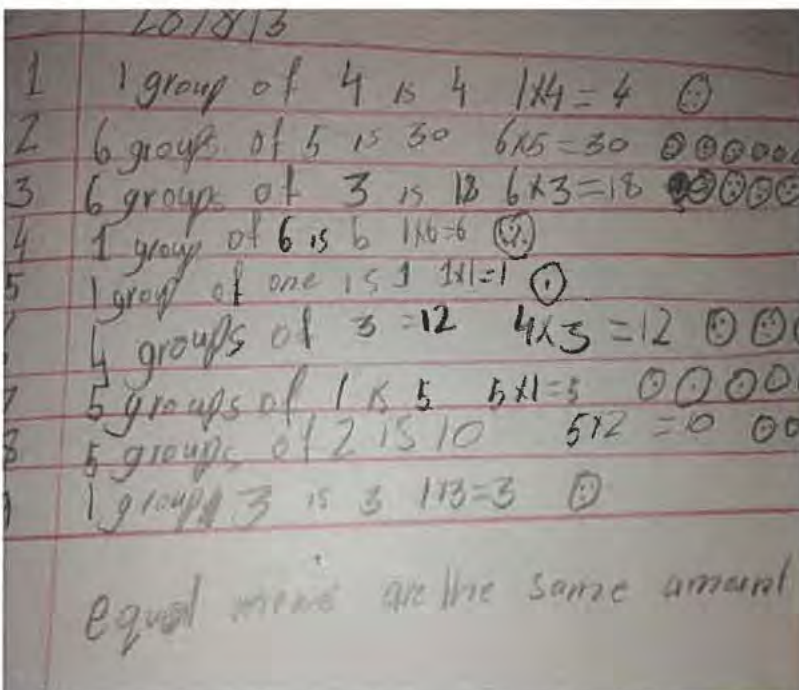 1 1 group of 4 is 4 1x4=4
2 6 groups of 5 is 30 6x5=30
3 6 groups of 3 is 18 6x3=18
4 1 group of 6 is 6 1x6=6
5 1 group of one is 1 1x1=1
4 groups of 3 =12 4x3=12
7 5 groups of 1 is 5 5x1=5
8 5 groups of 2 is 10 5x2=0
1 group 3 is 3 1x3=3
equal are the same amount